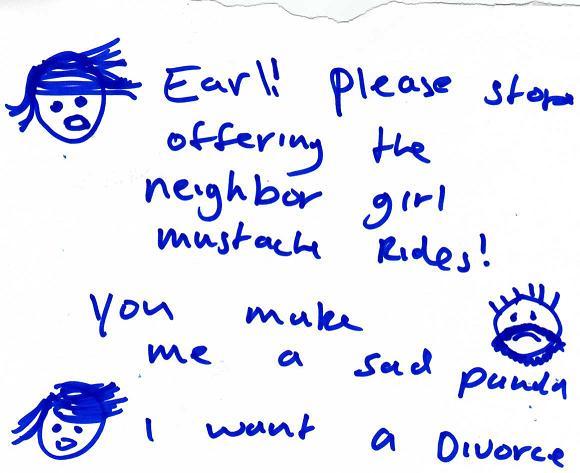 Earl! please stop
offering the
neighbor girl
mustache Rides!
you make
me a sad panda
I want a Divorce